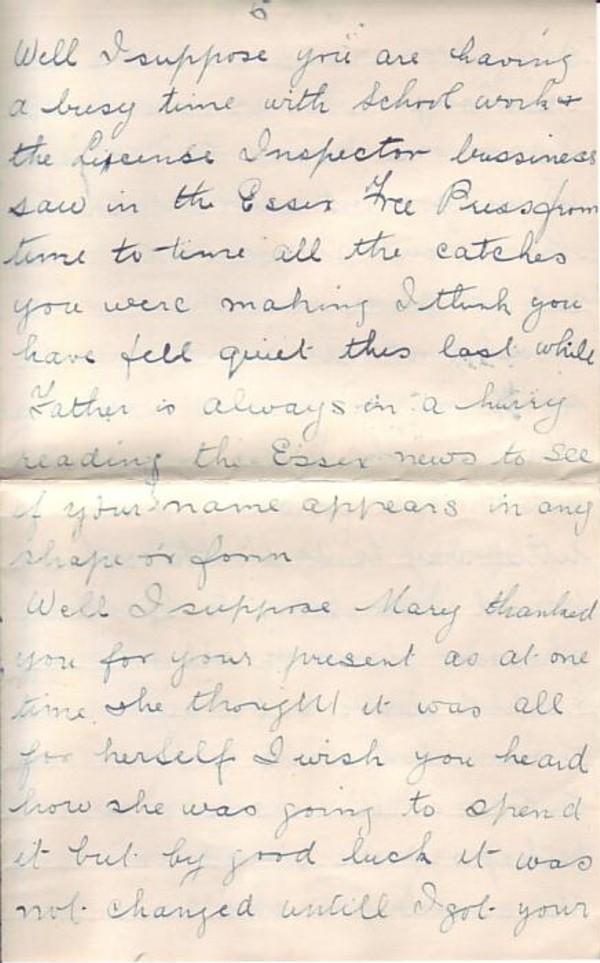 6
Well I suppose you are having
a busy time with School work &
the License Inspector bussiness
saw in the Essex Free Press from
time to time all the catches
you were making I think you
have fell quiet this last while
Father is always in a hurry
reading the Essex news to see
if your name appears in any
shape or form
Well I suppose Mary thanked
you for your present as at one
time she thought it was all
for herself I wish you heard
how she was going to spend
it but by good luck it was
not changed untill I got your